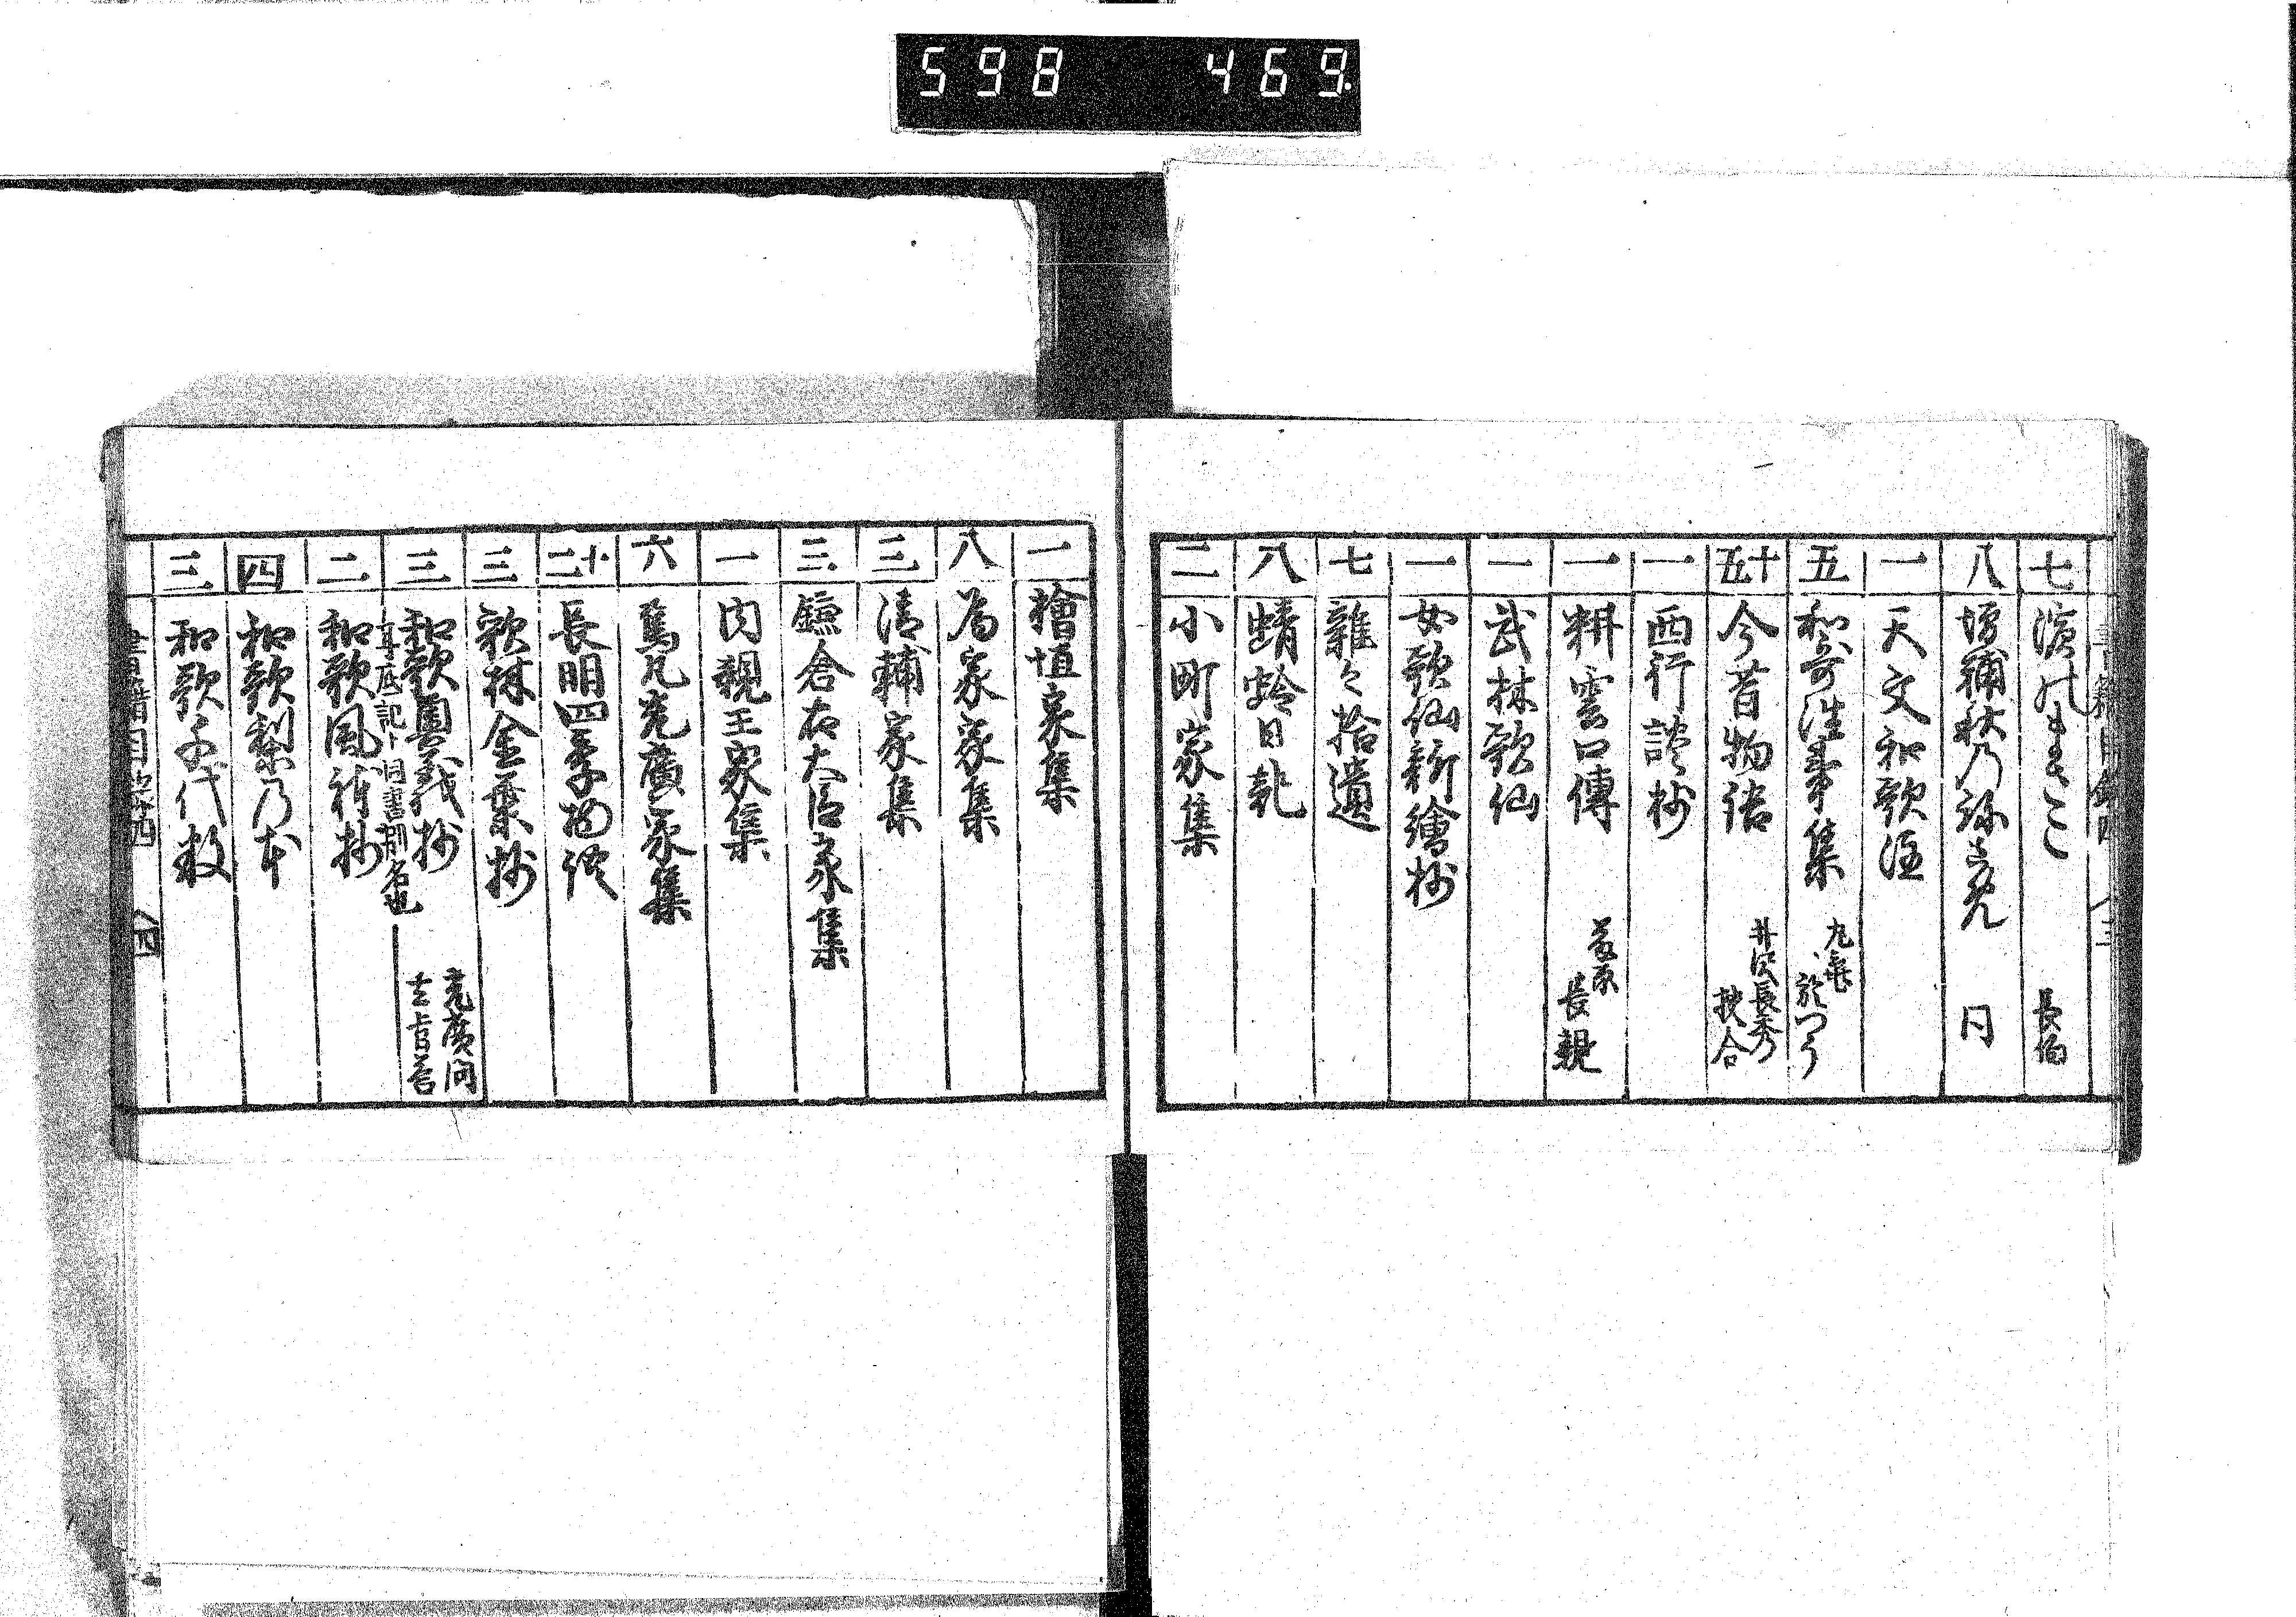 598 469.
七 濱のまさこ 長伯
八 増補秋乃祢さ免 同
一 天文和歌注
五 和哥浦事集
十五 今昔物語 井沢長秀 挍合
一 西行談抄
一 耕雲口傳 長親
一 武林歌仙
一 女歌仙新繪抄
七 雜々拾遺
八 蜻蛉日記
二 小町家集
一 檜垣家集
八 為家家集
三 清輔家集
三 鎌倉右大臣家集
一 内親王家集
六 烏丸光廣家集
十二 長明四季物語
三 歌林金葉抄
三 和歌奥義抄
耳底記ト同書別名也 光廣問 玄旨答
二 和歌風躰抄
四 和歌梨乃本
三 和歌千代数
書籍目録四 四